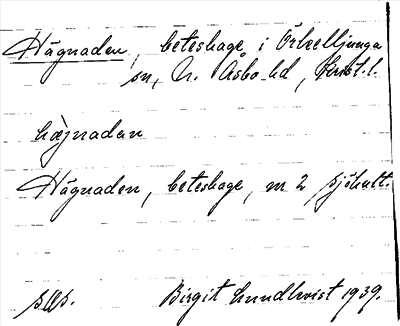 Hägnaden, beteshage i Örkelljunga
sn, N. Åsbo hd, Krist. l.
hægnadan
Hägnaden, beteshage, m 2 Sjöhult.
Birgit Lundkvist 1939.